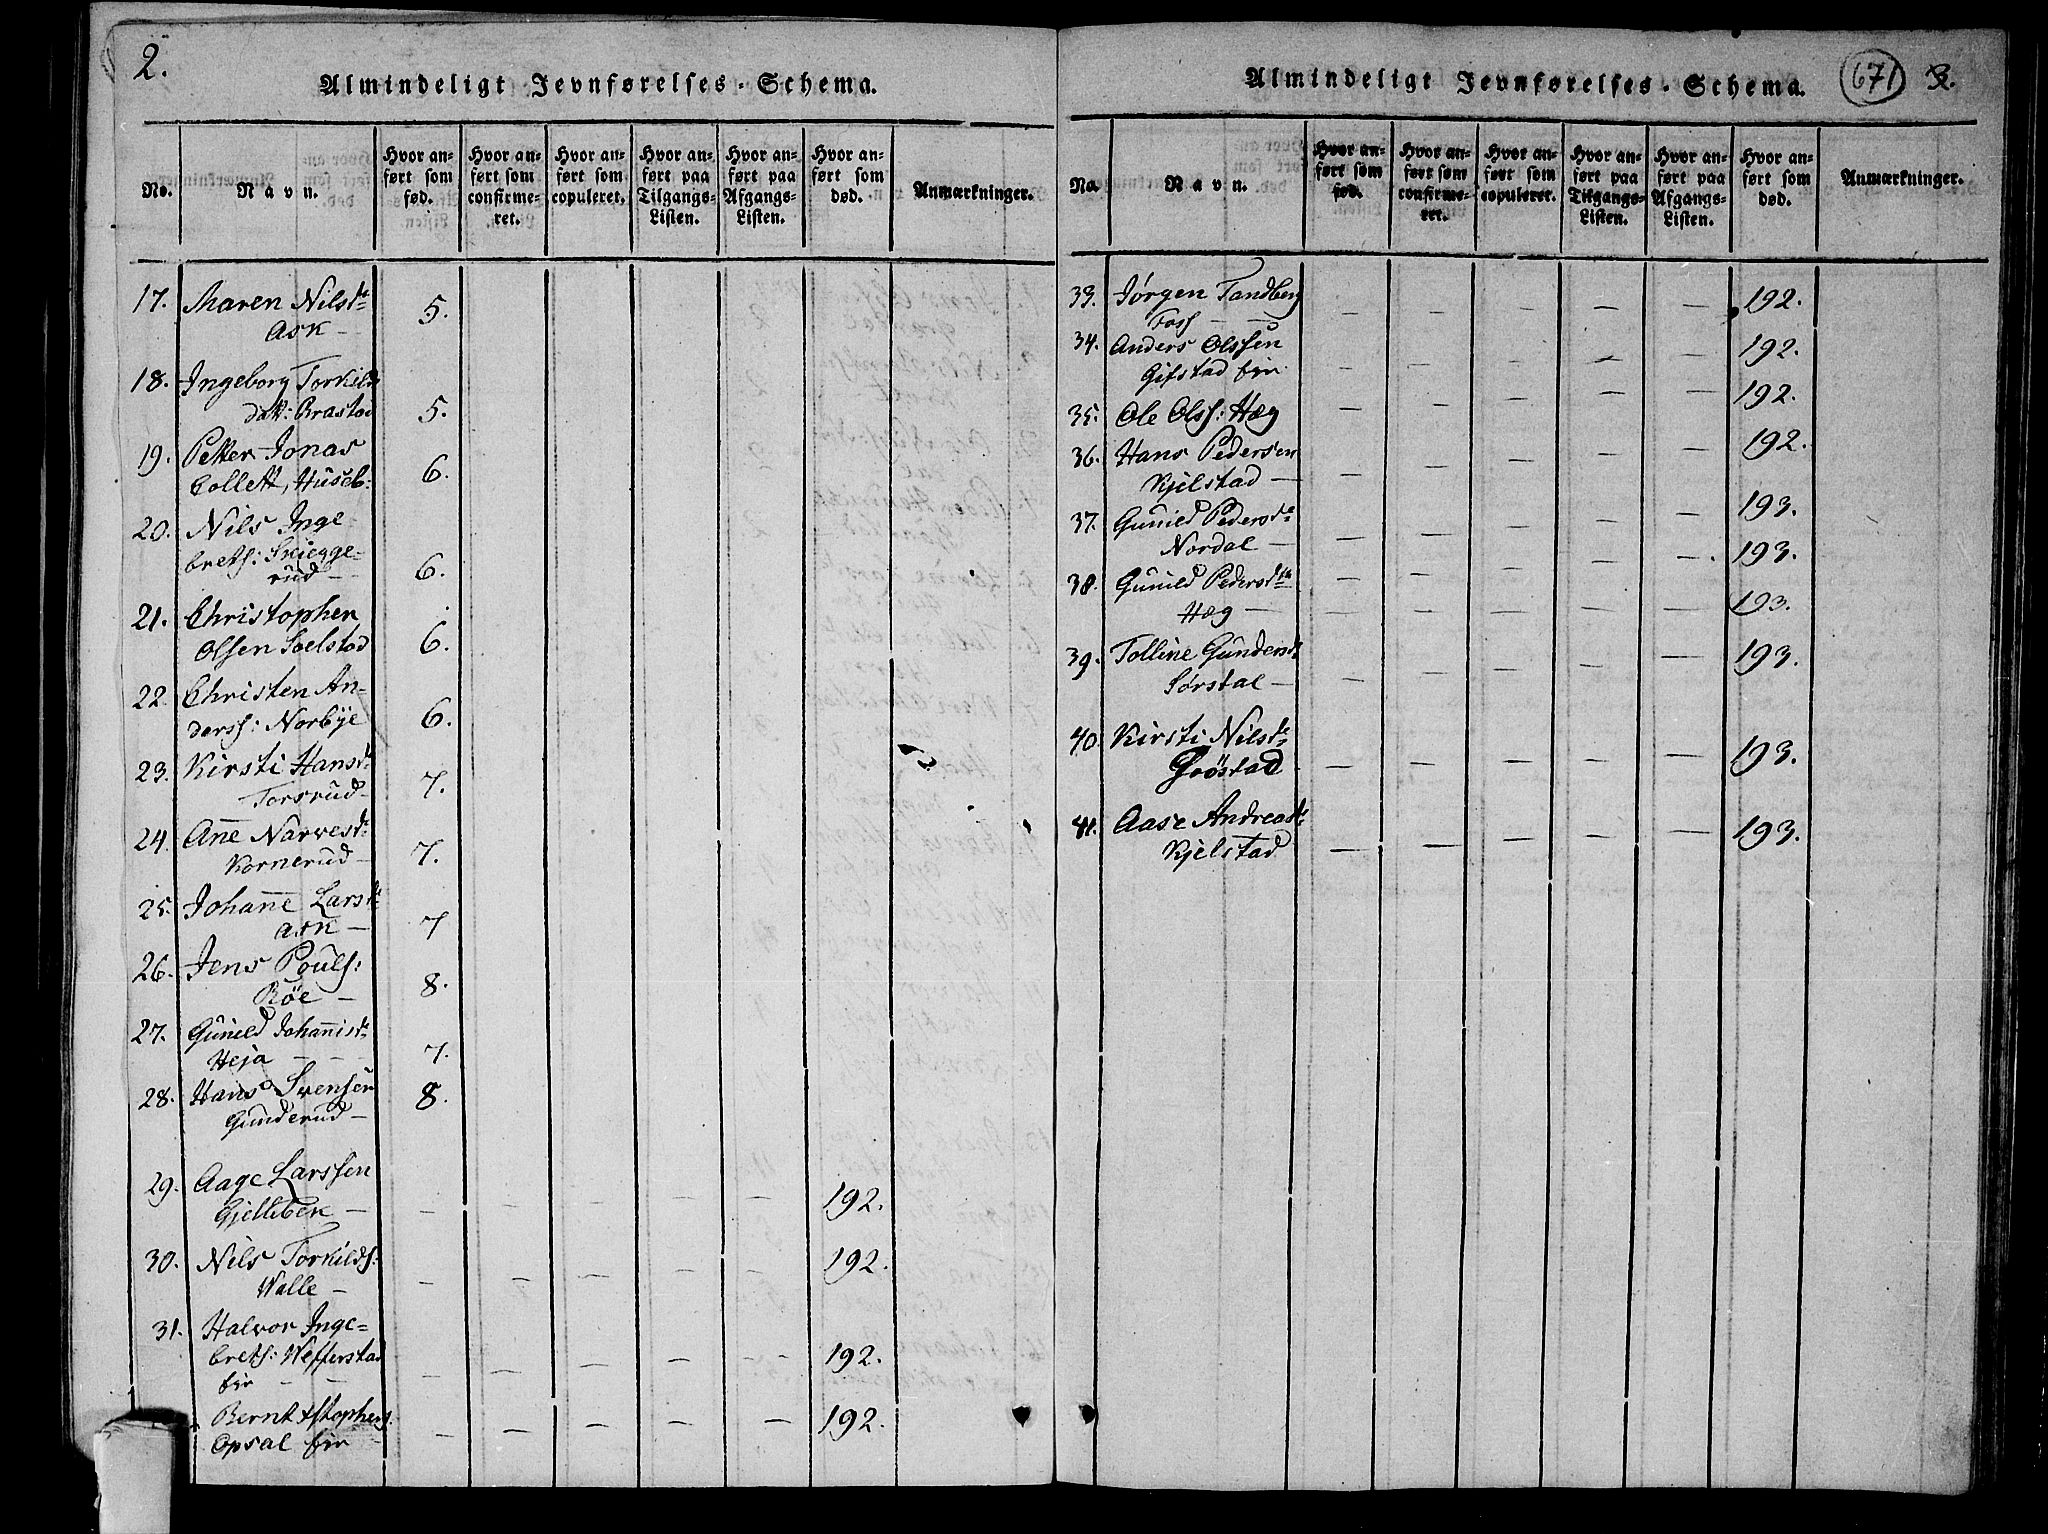 2.
Almindeligt Jevnførelses-Schema.
No.
Navn.
Hvor an-
ført som
fød.
Hvor an-
ført som
confirme-
ret.
Hvor an-
ført som
copuleret.
Hvor an-
ført paa
Tilgangs-
Listen.
Hvor an-
ført paa
Afgangs-
Listen.
Hvor an-
ført som
død.
Anmærkninger.
17. Maren Nilsd
Ask — 5.
18. Ingeborg Torkilds
datt: Brastad 5.
19. Petter Jonas
Collett, Huseb: 6.
20. Nils Inge
brets: Skiegge-
rud — 6.
21. Christopher
Olsen Soelstad 6.
22. Christen An-
derss: Norbye 6.
23. Kirsti Hansd
Torsrud — 7.
24. Ane Narvesd
Kornerud — 7.
25. Johane Larsd
Ask — 7
26. Jens Pouls:
Röe — 8.
27. Gunild Johanisd
Heja — — 7.
28. Hans Svensen 8.
Gunderud —
29. Aage Larssen
Gjellebek — — — — — — 192.
30. Nils Torkilds: 192.
Walle — — — — — —
31. Halvor Inge-
brets: Wefferstad 192.
eje — — — — — — —
Bernt Xstophers 192.
Opsal eje — — — — — —
Almindeligt Jevnførelses-Schema. 671 3.
No
Navn.
Hvor an-
ført som
fød.
Hvor an-
ført som
confirme-
ret.
Hvor an-
ført som
copuleret.
Hvor an-
ført paa
Tilgangs-
Listen.
Hvor an-
ført paa
Afgangs-
Listen.
Hvor an-
ført som
død.
Anmærkninger.
33. Jørgen Tandberg — — — — — 192.
Foss — —
34. Anders Olssen — — — — — 192.
Gifstad eje
35. Ole Olss: Hæg — — — — — 192.
36. Hans Pedersen — — — — — 192.
Kjelstad —
37. Gunild Pedersd — — — — — 193.
Nordal — — — — — — 193.
38. Gunild Pedersd
Hæg — — — — — — 193.
39. Tolline Gundersd 193.
Sørstal — — — — — —
40. Kirsti Nilsd
Gröstad — — — — — 193.
41. Aase Andreasd
Kjelstad — — — — — 193.